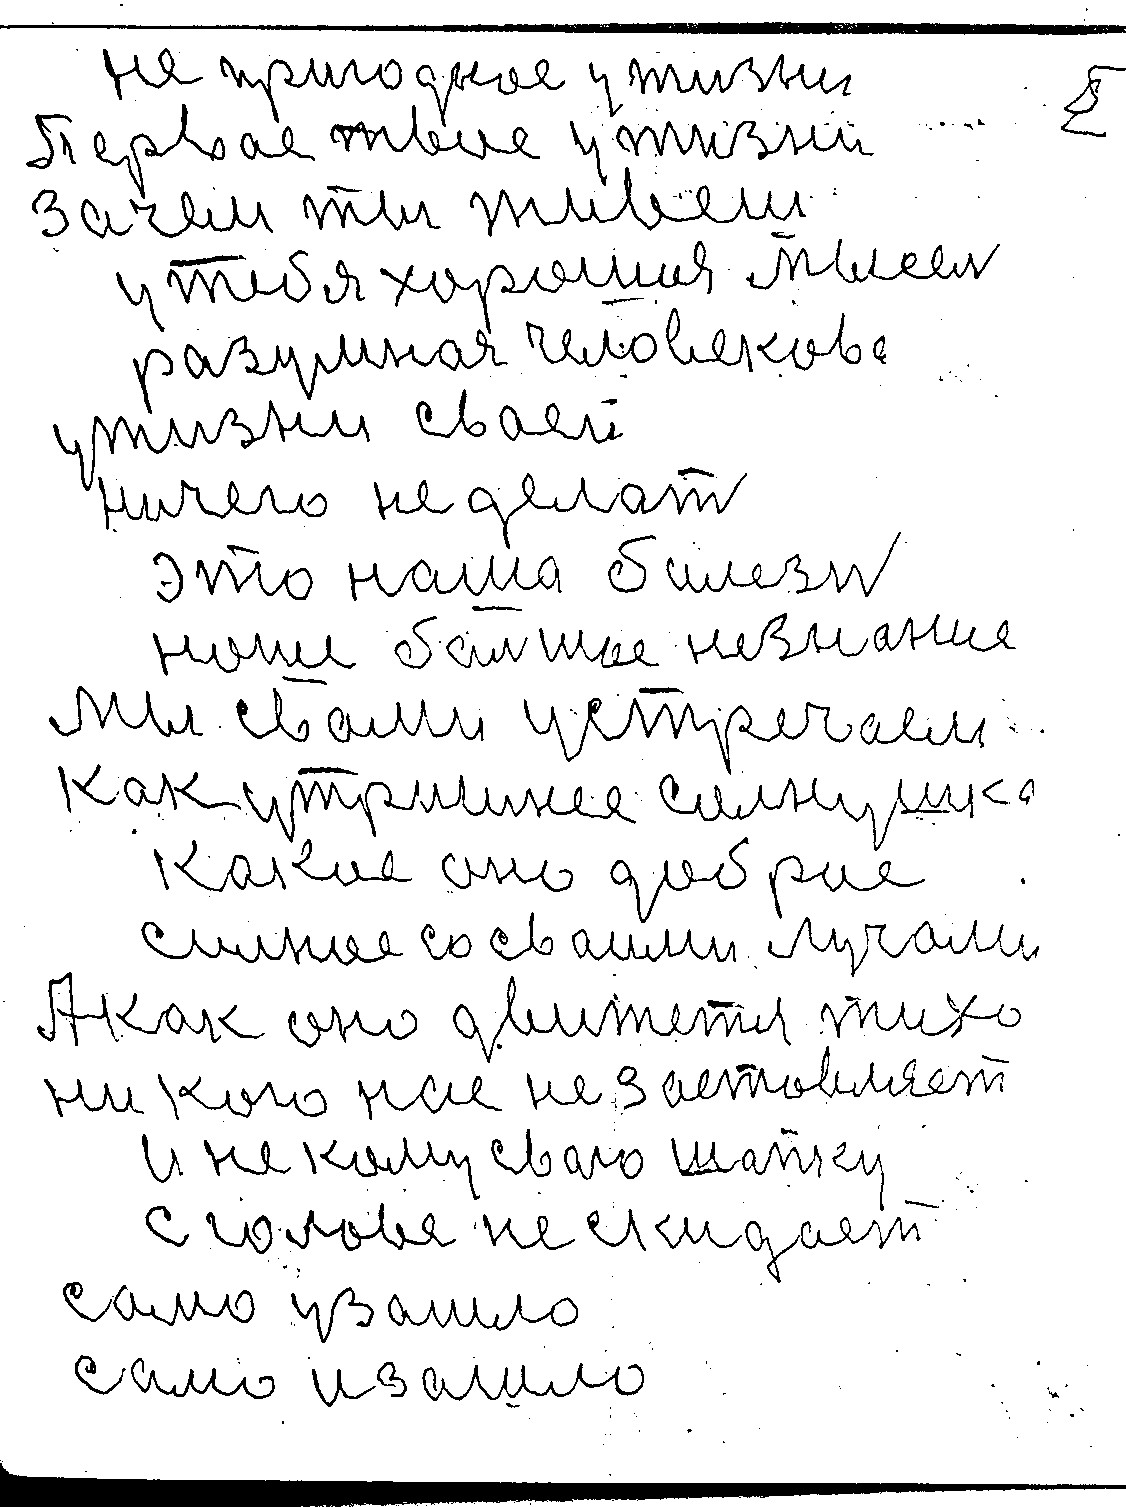 не пригодное у жизни
Первое твое у жизни
Зачем ты живеш
у тебя хорошая мысел
разумная человекова
у жизни сваей
ничего не делат
это наша балезн
наше балшое незнание
Мы свами устречаем
как утришнее солнушка
Какое оно доброе
силное со сваими лучами
А как оно движется тихо
ни кого нас не заставляет
И не кому сваю шапку
с голове не скидает
само узашло
само и зашло